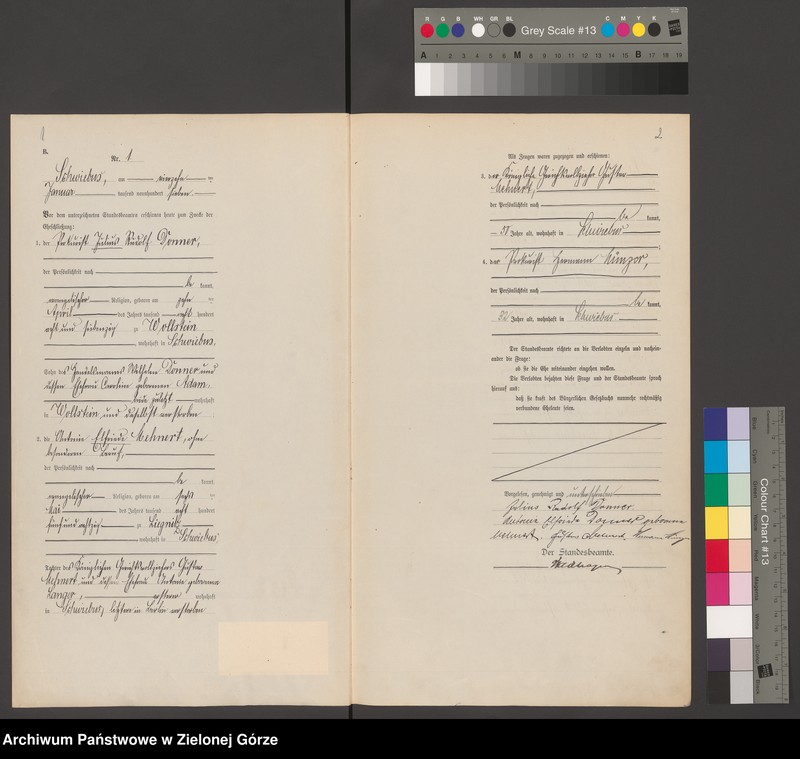 R G B WH GR BL Grey Scale #13 C M Y K
A 1 2 3 4 5 6 M 8 9 10 11 12 13 14 15 B 17 18 19
1
B.
Nr. 1
Schwiebus, am vierzehn ten
Januar tausend neunhundert sieben
Vor dem unterzeichneten Standesbeamten erschienen heute zum Zwecke der
Eheschließung:
1. der Prokurist Julius Rudolf Donner,
der Persönlichkeit nach
be kannt,
evangelischer Religion, geboren am zehn ten
April des Jahres tausend acht hundert
acht und siebenzig zu Wollstein
, wohnhaft in Schwiebus,
Sohn des Handelsmanns Wilhelm Donner und
dessen Ehefrau Caroline geborenen Adam
beide zuletzt wohnhaft
in Wollstein und daselbst verstorben
2. die Antonie Elfriede Mehnert, ohne
besonderen Beruf,
der Persönlichkeit nach
be kannt,
evangelischer Religion, geboren am sechs ten
Mai des Jahres tausend acht hundert
fünf und achtzig zu Liegnitz
, wohnhaft in Schwiebus
Tochter des Königlichen Gerichtsvollziehers Gustav
Mehnert und dessen Ehefrau Antonie geborenen
Langer, ersterer wohnhaft
in Schwiebus, letztere in Berlin verstorben
2
Als Zeugen waren zugezogen und erschienen:
3. der Königliche Gerichtsvollzieher Gustav
Mehnert,
der Persönlichkeit nach
be kannt,
Jahre alt, wohnhaft in Schwiebus
4. der Prokurist Hermann
der Persönlichkeit nach
be kannt,
32 Jahre alt, wohnhaft in Schwiebus
Der Standesbeamte richtete an die Verlobten einzeln und nachein-
ander die Frage:
ob sie die Ehe miteinander eingehen wollen.
Die Verlobten bejahten diese Frage und der Standesbeamte sprach
hierauf aus:
daß sie kraft des Bürgerlichen Gesetzbuchs nunmehr rechtmäßig
verbundene Eheleute seien.
Vorgelesen, genehmigt und unterschrieben
Julius Rudolf Donner
Antonie Elfriede Donner geborene
Mehnert. Gustav Mehnert, Hermann
Der Standesbeamte.
Colour Chart #13
Archiwum Państwowe w Zielonej Górze